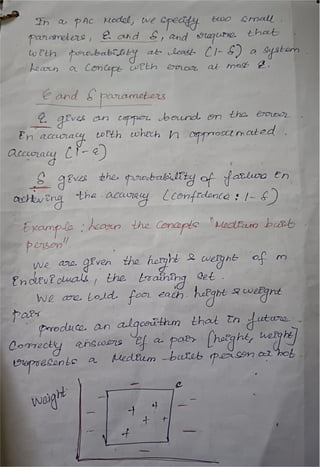 In a pac model, we specify two small
parameters, ε and δ, and require that
with probability at least (1-δ) a system
learn a concept with error at most ε.
ε and δ parameters
ε gives an upper bound on the error
in accuracy with which h approximated.
accuracy (1-ε)
δ gives the probability of failure in
achieving the accuracy (confidence: 1-δ)
Example: learn the concepts "Medium built
person"
we are given the height & weight of m
individuals, the training set.
We are told for each height & weight
pair
produce an algorithm that in future
correctly answers if a pair [height, weight]
represents a Medium-built person or not.
weight
c